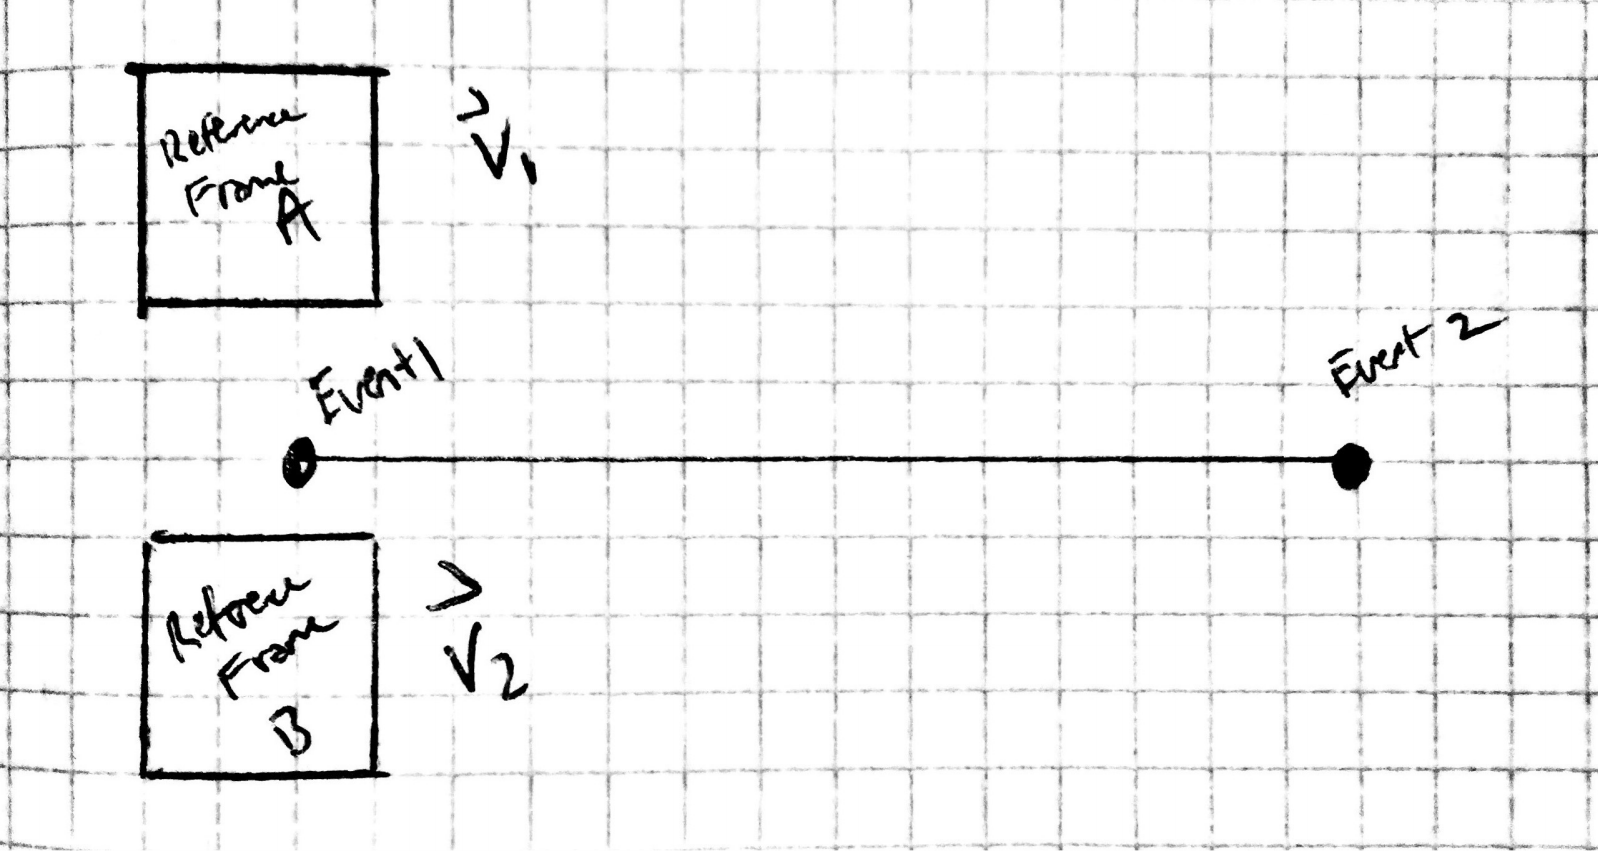 Reference
Frame
A
V₁
Event 1
Event 2
Refrence
Frame
B
V₂